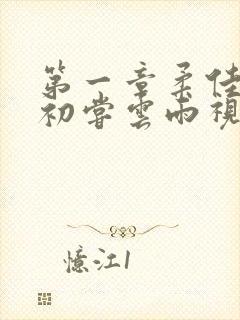 第一章柔佳
初尝云雨视
憶江1